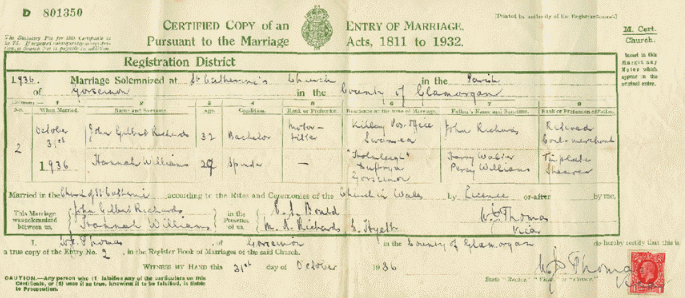 D 801350
CERTIFIED COPY of an ENTRY OF MARRIAGE.
Pursuant to the Marriage Acts, 1811 to 1932.
[Printed by authority of the Registrar-General.]
M. Cert.
Church.
Registration District
1936. Marriage Solemnized at St Catherine's Church in the Parish
of Gorseinon in the County of Glamorgan
No. When Married. Name and Surname. Age. Condition. Rank or Profession. Residence at the time of Marriage. Father's Name and Surname. Rank or Profession of Father.
2 October 31st 1936 John Gilbert Richards 32 Bachelor Motor-fitter Killay Post Office Swansea John Richards Retired Coal-merchant
Hannah Williams 27 Spinster — Gorseinon Percy Williams Tinplate Shearer
Married in the Church of St Catherine according to the Rites and Ceremonies of the Church in Wales by Licence or after by me,
This Marriage was solemnized between us, John Gilbert Richards Hannah Williams in the Presence of us, M. K. Richards W. S. Thomas Vicar
I, W. S. Thomas of Gorseinon in the County of Glamorgan do hereby certify that this is
a true copy of the Entry No. 2, in the Register Book of Marriages of the said Church.
WITNESS MY HAND this 31st day of October 1936
W. S. Thomas
CAUTION.—Any person who (1) falsifies any of the particulars on this
Certificate, or (2) uses it as true, knowing it to be falsified, is liable
to Prosecution.